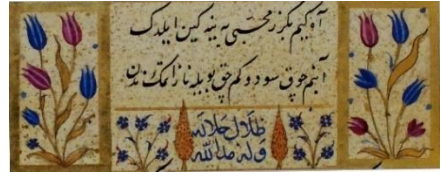 کیم بکزر محبی یه ینه کین ایلدک
آ بنم چوق سودوکم چوق بویله ناز اتمک ندن
ظلال جلاله
وله مد الله